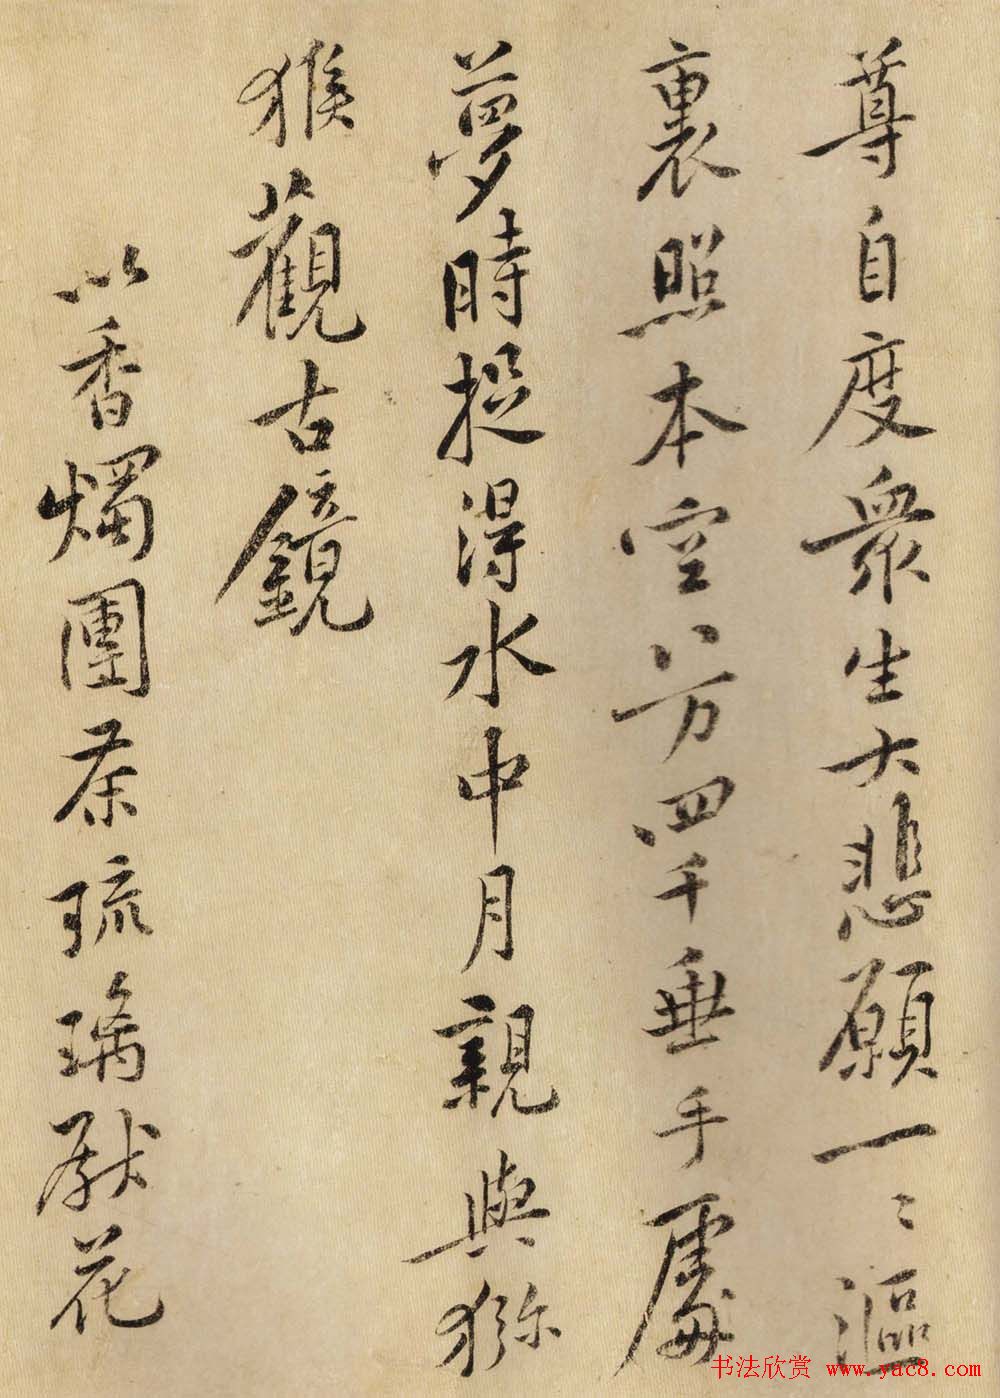 尊自度衆生大悲願一〻漚
裏照本空八万四千垂手處
夢時捉得水中月親與獼
猴觀古鏡
以香燭團茶琉璃獻花
书法欣赏 www.yac8.com